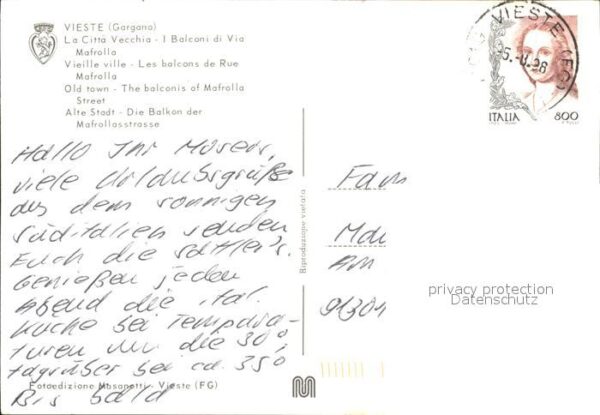 VIESTE (Gargano)
La Città Vecchia - I Balconi di Via
Mafrolla
Vieille ville - Les balcons de Rue
Mafrolla
Old town - The balconis of Mafrolla
Street
Alte Stadt - Die Balkon der
Mafrollasstrasse
Hallo Ihr Mosers,
viele Urlaubsgrüße
aus dem sonnigen
Süditalien senden
Euch die Sattler's.
Genießen jeden
Abend die ital.
Küche bei Tempera-
turen um die 30°,
tagsüber bei ca. 35°
Bis bald
Fotoedizione Masanotti - Vieste (FG)
Riproduzione vietata
VIESTE
ITALIA 800
Fam
Am
91301
privacy protection
Datenschutz